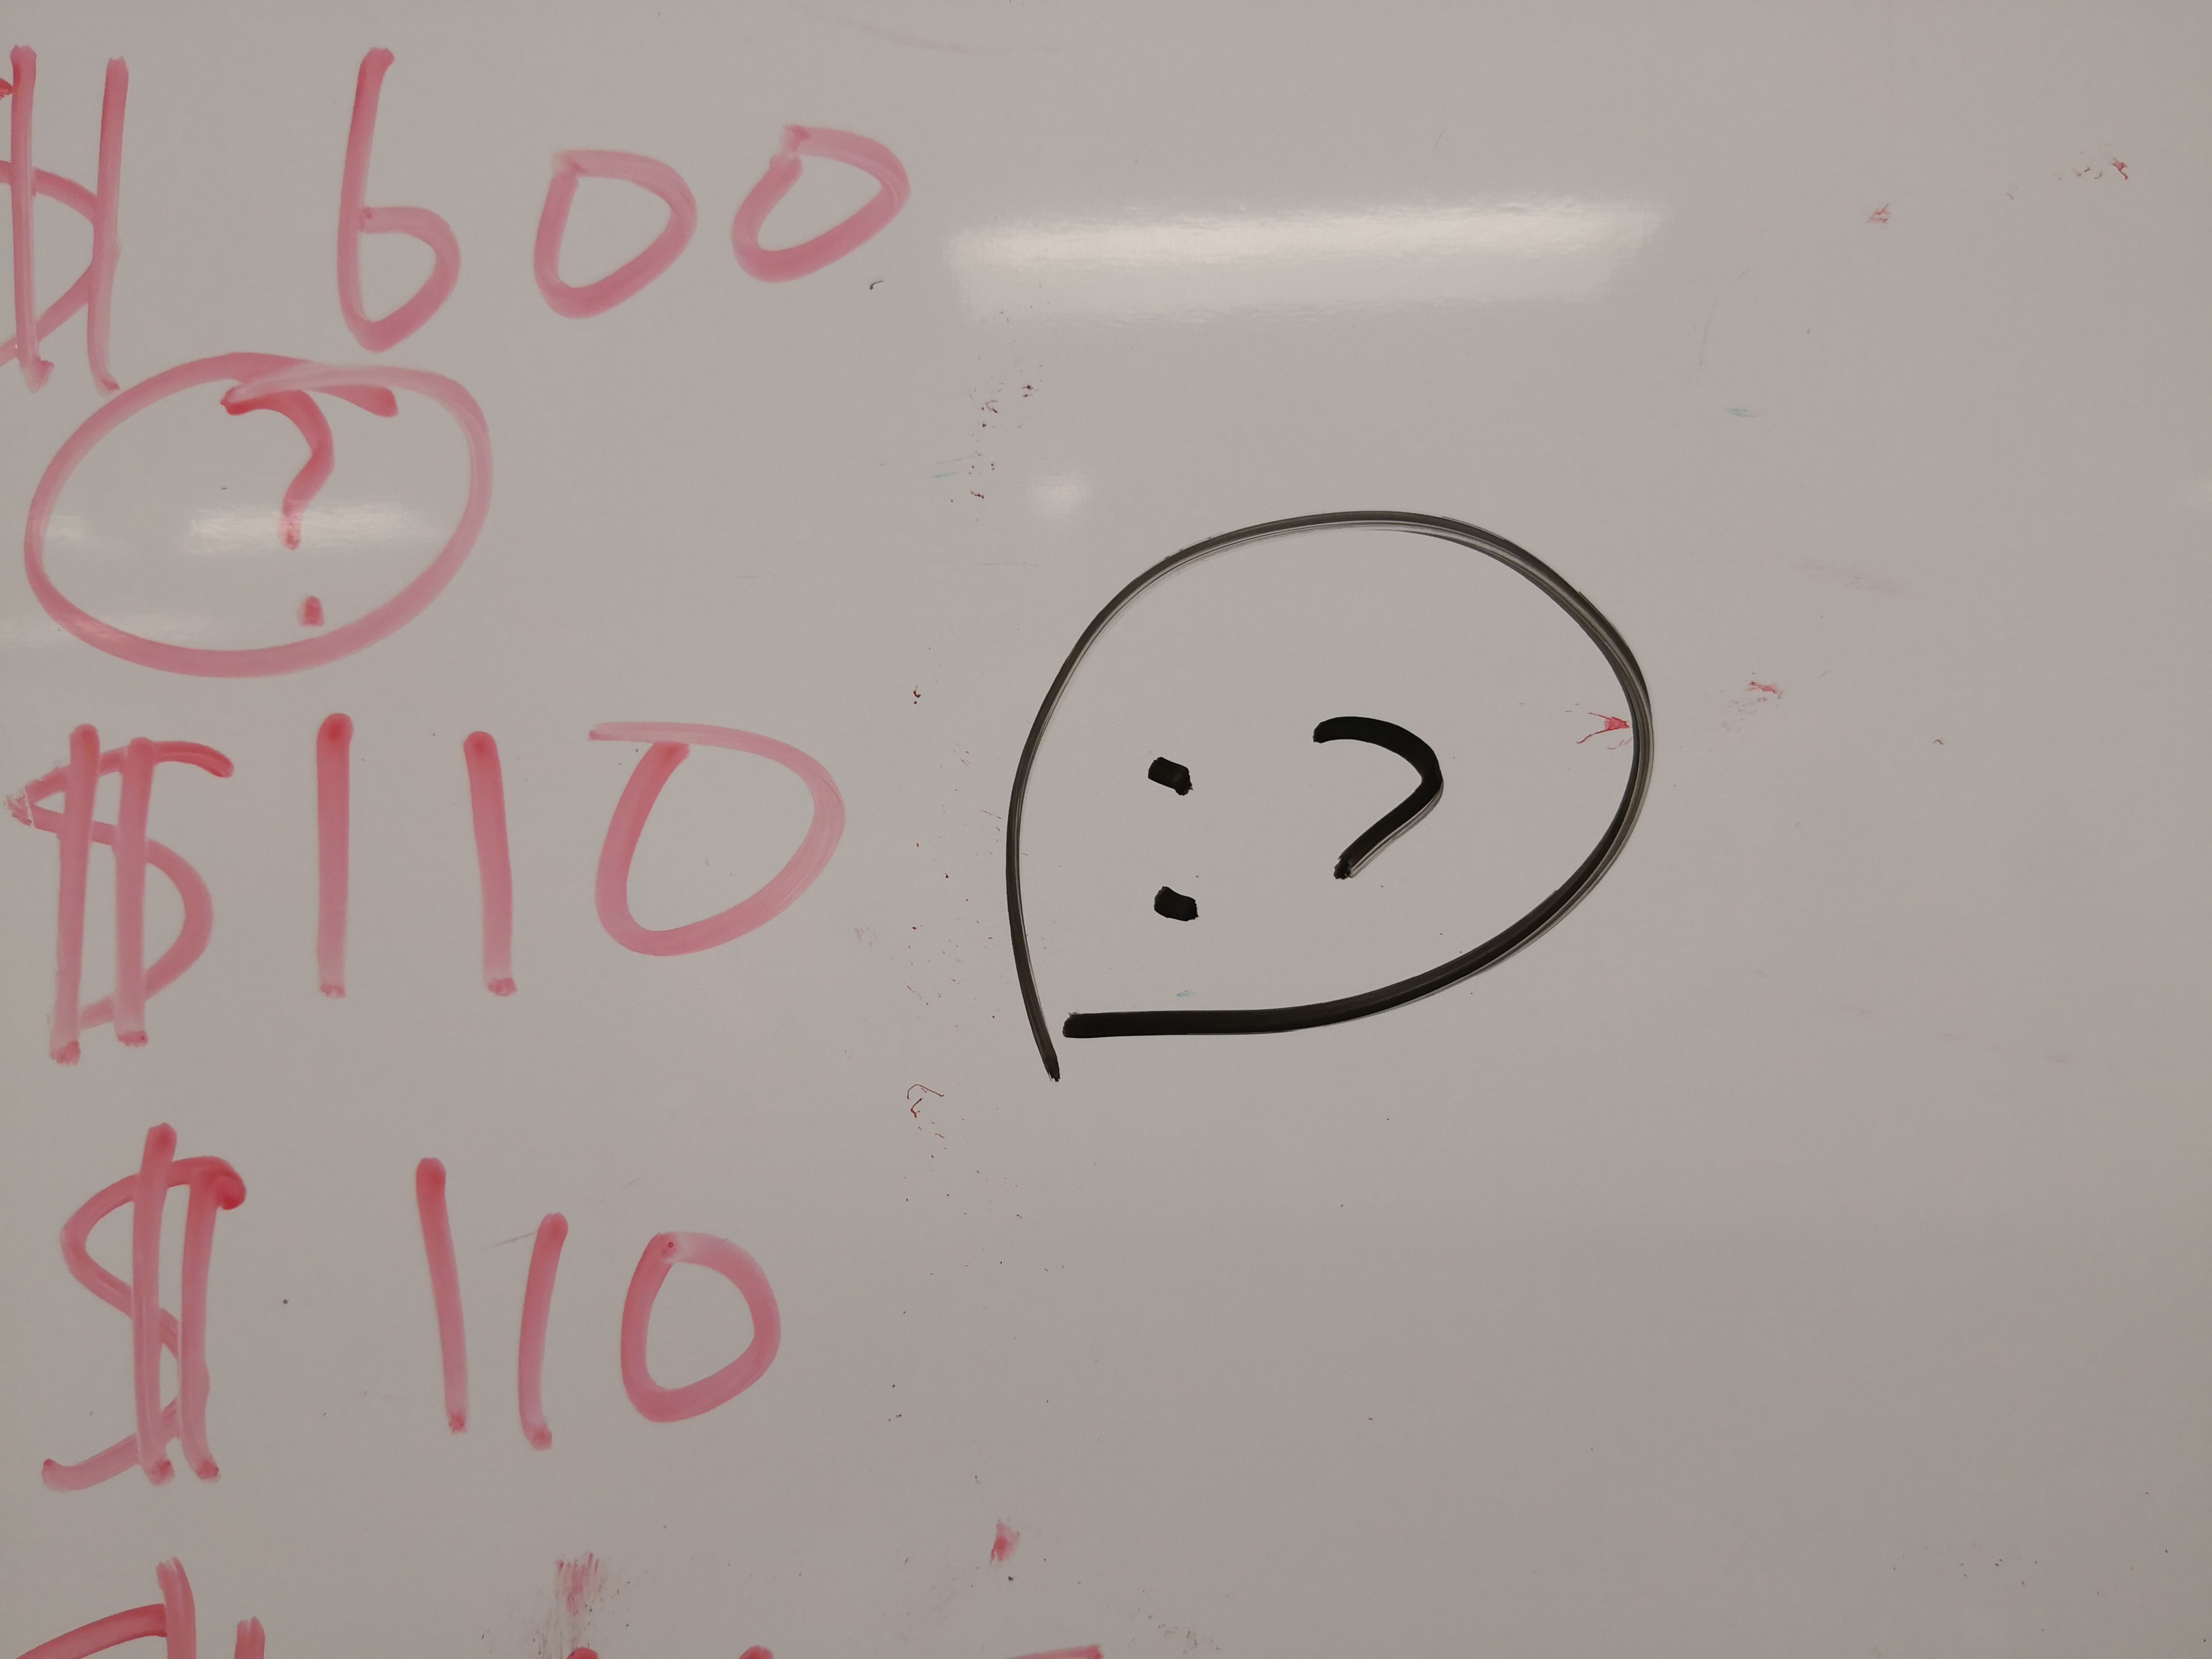 $ 600
?
$ 110
:)
$ 110